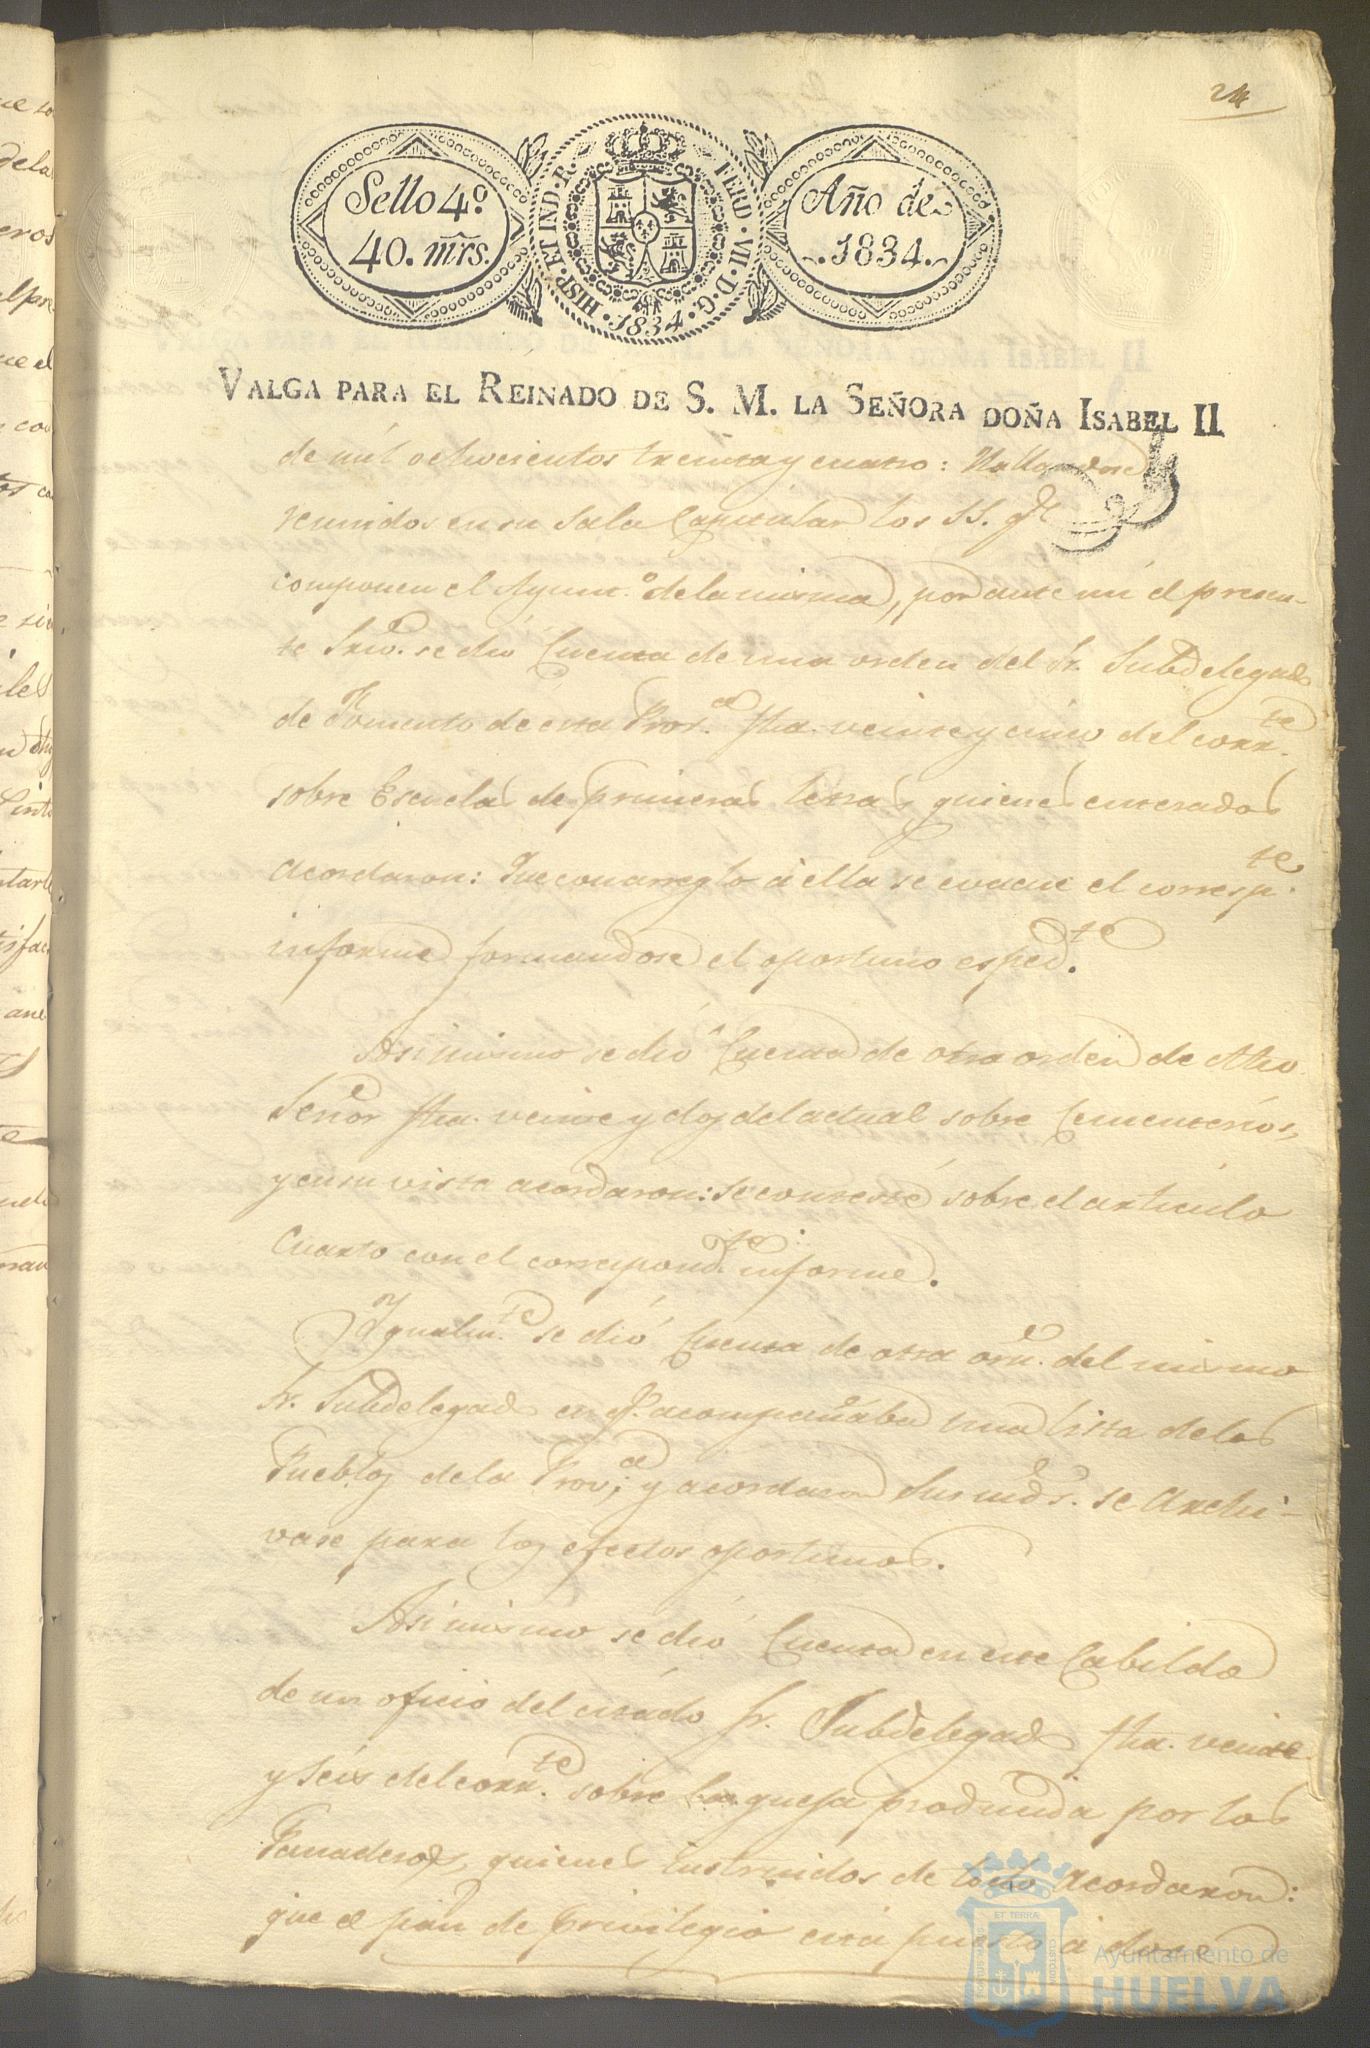 24
Sello 4º
40. mrs.
HISP. ET IND. R.
FERD. VII. D. G.
1834
Año de
1834.
VALGA PARA EL REINADO DE S. M. LA SEÑORA DOÑA ISABEL II
de mil ochocientos treinta y cuatro: Hallandose
reunidos en su Sala Capitular los SS. qe
componen el Ayunto. de la misma, por ante mi el presen-
te Srio. se dió Cuenta de una orden del Sr. Subdelegado
de Fomento de esta Prova. fha. veinte y cinco del corrte.
sobre Escuelas de primeras letras, quienes enterados
acordaron: Que con arreglo á ella se evacue el correspte.
informe formandose el oportuno espedte.
Asi mismo se dió Cuenta de otra orden de dho.
Señor fha. veinte y dos del actual sobre Cementerios,
y en su vista acordaron: se conteste sobre el articulo
Cuarto con el correspondte. informe.
Ygualmte. se dió Cuenta de otra orn. del mismo
Sr. Subdelegado en q. acompañaba una lista de los
Pueblos de la Prova; y acordaron Sus mds. se Archi-
vase para los efectos oportunos.
Asi mismo se dió Cuenta en este Cabildo
de un oficio del citado Sr. Subdelegado fha. veinte
y seis del corrte. sobre la queja producida por los
Panaderos, quienes instruidos de todo Acordaron:
que el pan de Privilegio está puesto á doce
ET TERRAE
CUSTODIA
Ayuntamiento de
HUELVA